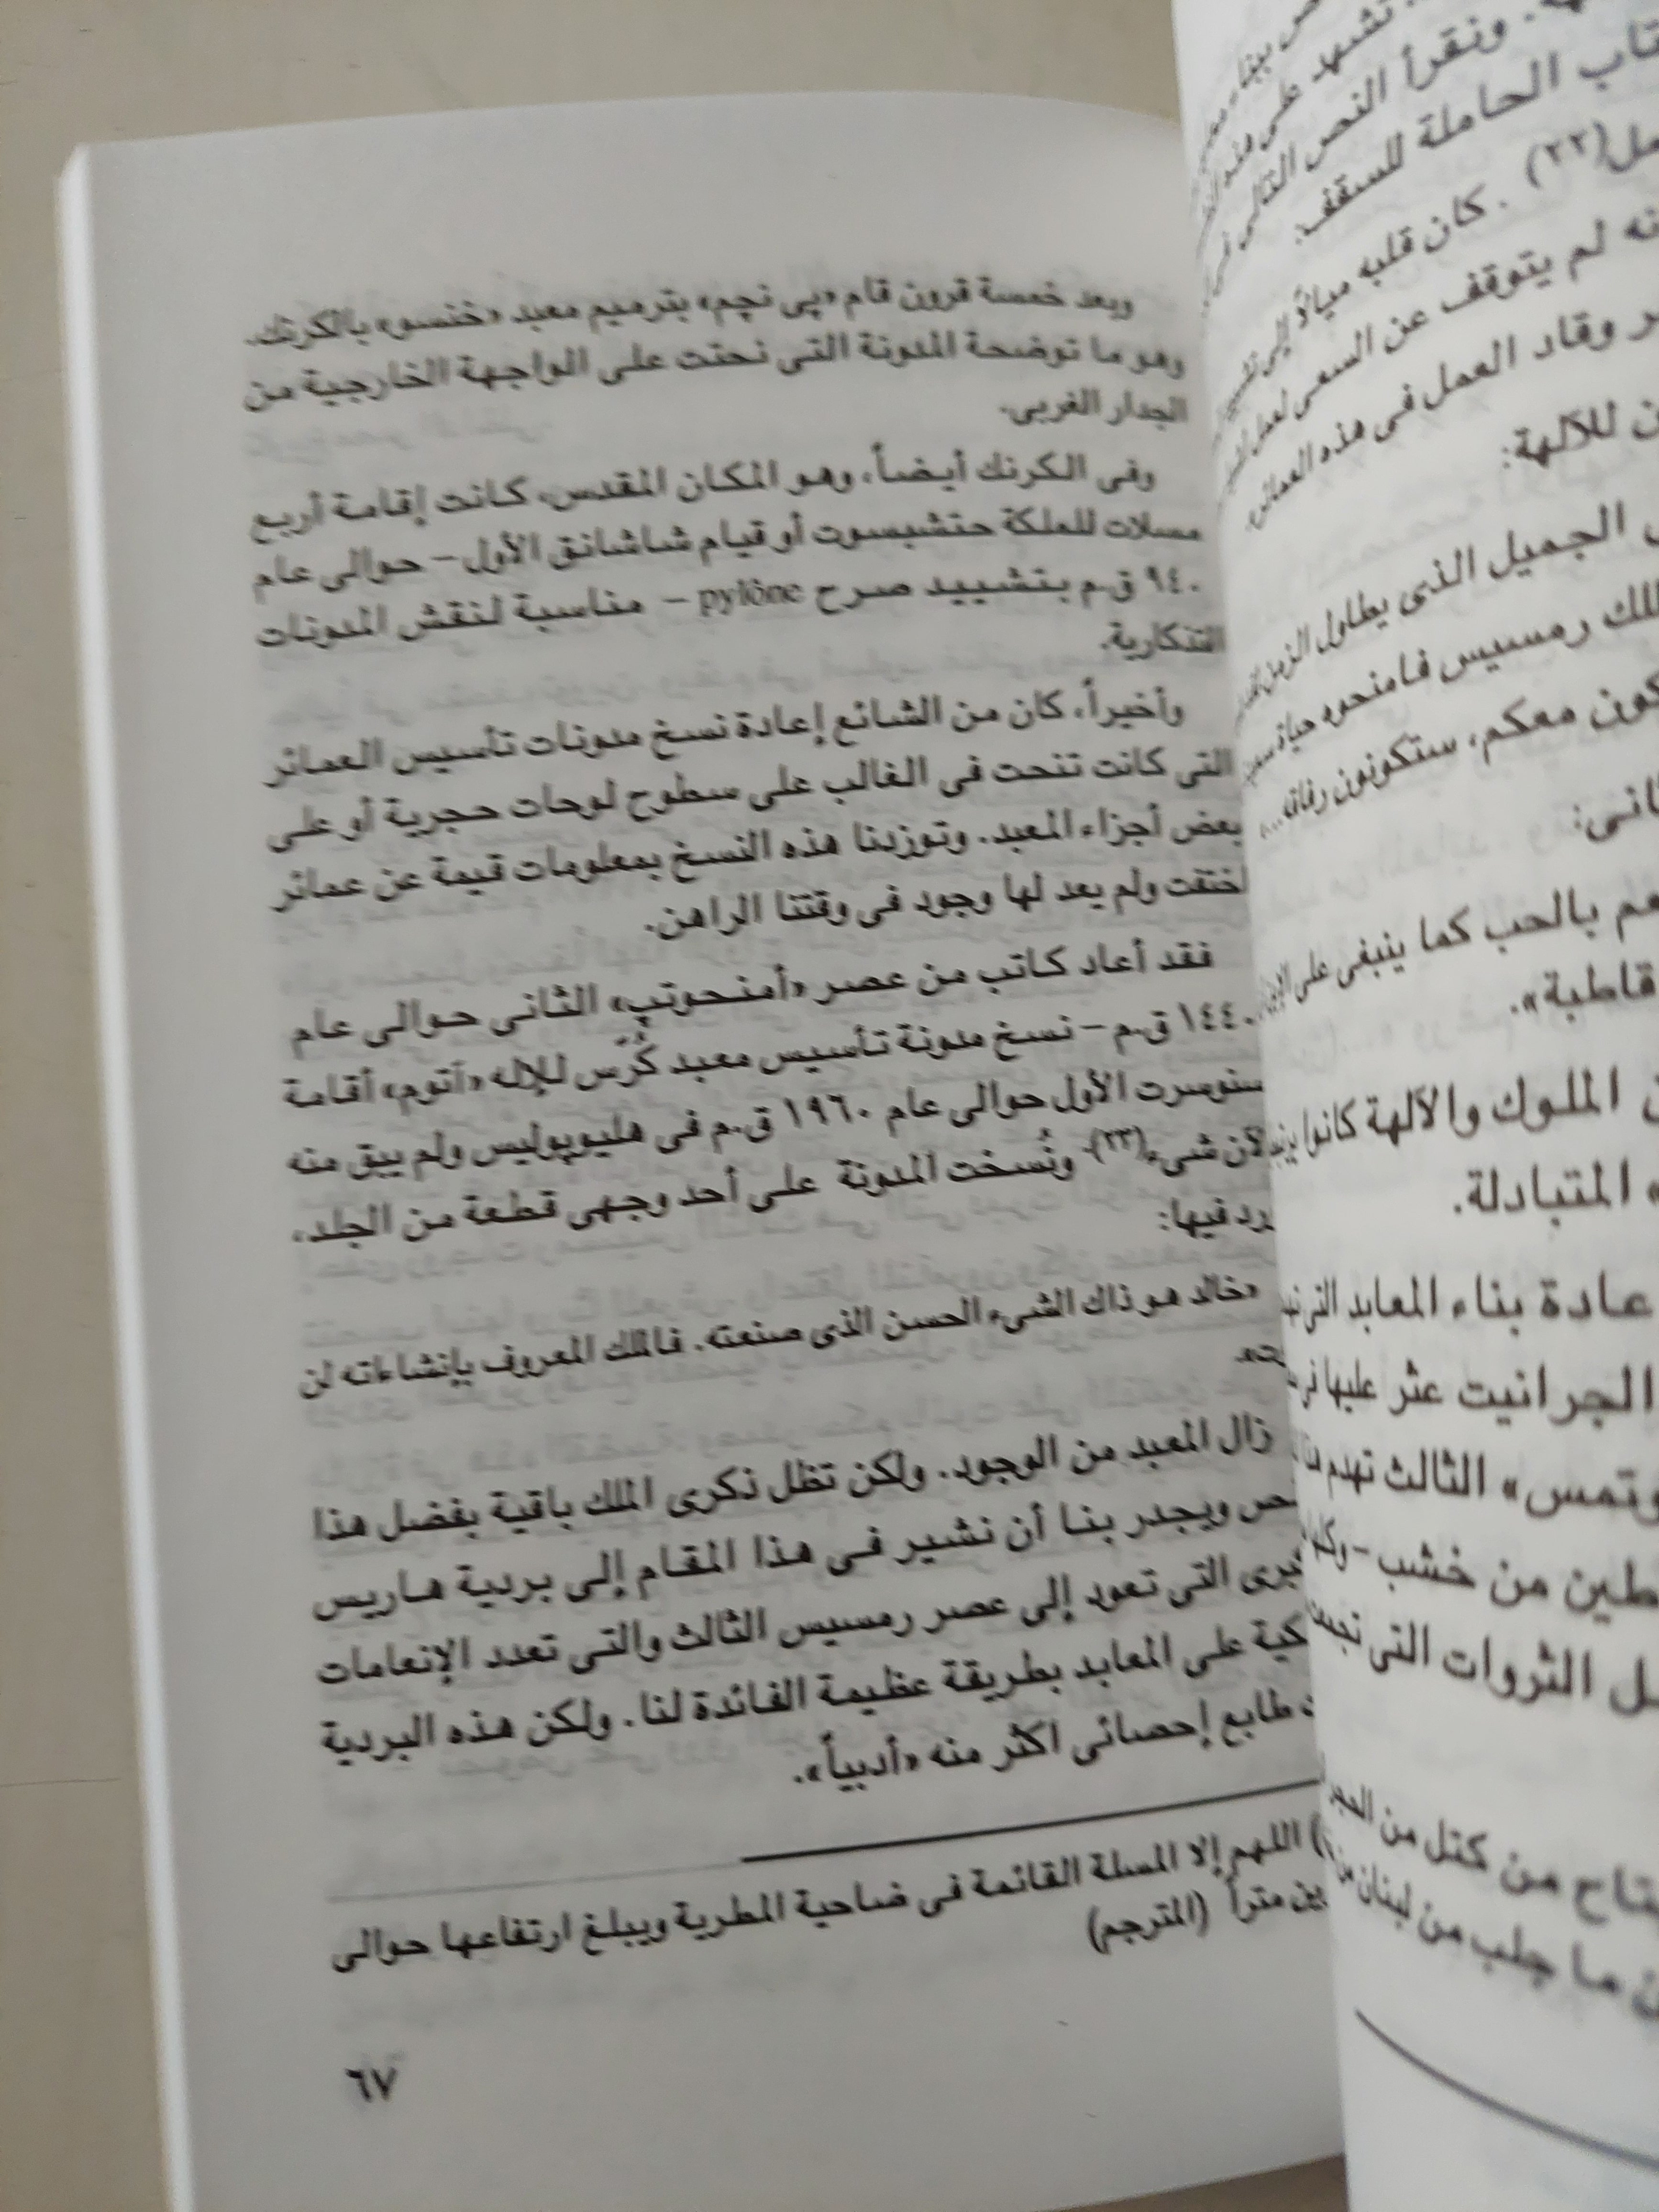 وبعد خمسة قرون قام «پي نچم» بترميم معبد «خنسو» بالكرنك،
وهو ما توضحة المدونة التى نحتت على الواجهة الخارجية من
الجدار الغربى.
وفى الكرنك أيضاً، وهو المكان المقدس، كانت إقامة أربع
مسلات للملكة حتشبسوت أو قيام شاشانق الأول – حوالى عام
٩٤٠ ق.م بتشييد صرح pylône – مناسبة لنقش المدونات
التذكارية.
وأخيراً، كان من الشائع إعادة نسخ مدونات تأسيس العمائر
التى كانت تنحت فى الغالب على سطوح لوحات حجرية أو على
بعض أجزاء المعبد. وتوزدنا هذه النسخ بمعلومات قيمة عن عمائر
اختقت ولم يعد لها وجود فى وقتنا الراهن.
فقد أعاد كاتب من عصر «أمنحوتپ» الثانى حوالى عام
١٤٤٠ ق.م – نسخ مدونة تأسيس معبد كُرّس للإله «آتوم» أقامة
سنوسرت الأول حوالى عام ١٩٦٠ ق.م فى هليوپوليس ولم يبق منه
الآن شىء(٢٣). ونُسخت المدونة على أحد وجهى قطعة من الجلد،
رد فيها:
«خالد هو ذاك الشىء الحسن الذى صنعته. فالملك المعروف بإنشاءاته لن
ت».
زال المعبد من الوجود. ولكن تظل ذكرى الملك باقية بفضل هذا
ص ويجدر بنا أن نشير فى هذا المقام إلى بردية هاريس
برى التى تعود إلى عصر رمسيس الثالث والتى تعدد الإنعامات
كية على المعابد بطريقة عظيمة الفائدة لنا. ولكن هذه البردية
طابع إحصائى اكثر منه «أدبياً».
) اللهم إلا المسلة القائمة فى ضاحية المطرية ويبلغ ارتفاعها حوالى
ين متراً (المترجم)
٦٧
تشهد على هذه
. ونقرأ النص التالى
تاب الحاملة للسقف:
مل(٢٢) . كان قلبه ميالاً إلى
نه لم يتوقف عن السعى لعمل
ر وقاد العمل فى هذه العمائر
ن للآلهة:
الجميل الذى يطاول الزمن
لك رمسيس فامنحوه حياة
كون معكم، ستكونون رفاقه...
انى:
عم بالحب كما ينبغى على
قاطبة».
ن الملوك والآلهة كانوا
» المتبادلة.
عادة بناء المعابد التى
الجرانيت عثر عليها فى
وتمس» الثالث تهدم
طين من خشب –
ل الثروات التى
تاح من كتل من الحجر
ن ما جلب من لبنان من